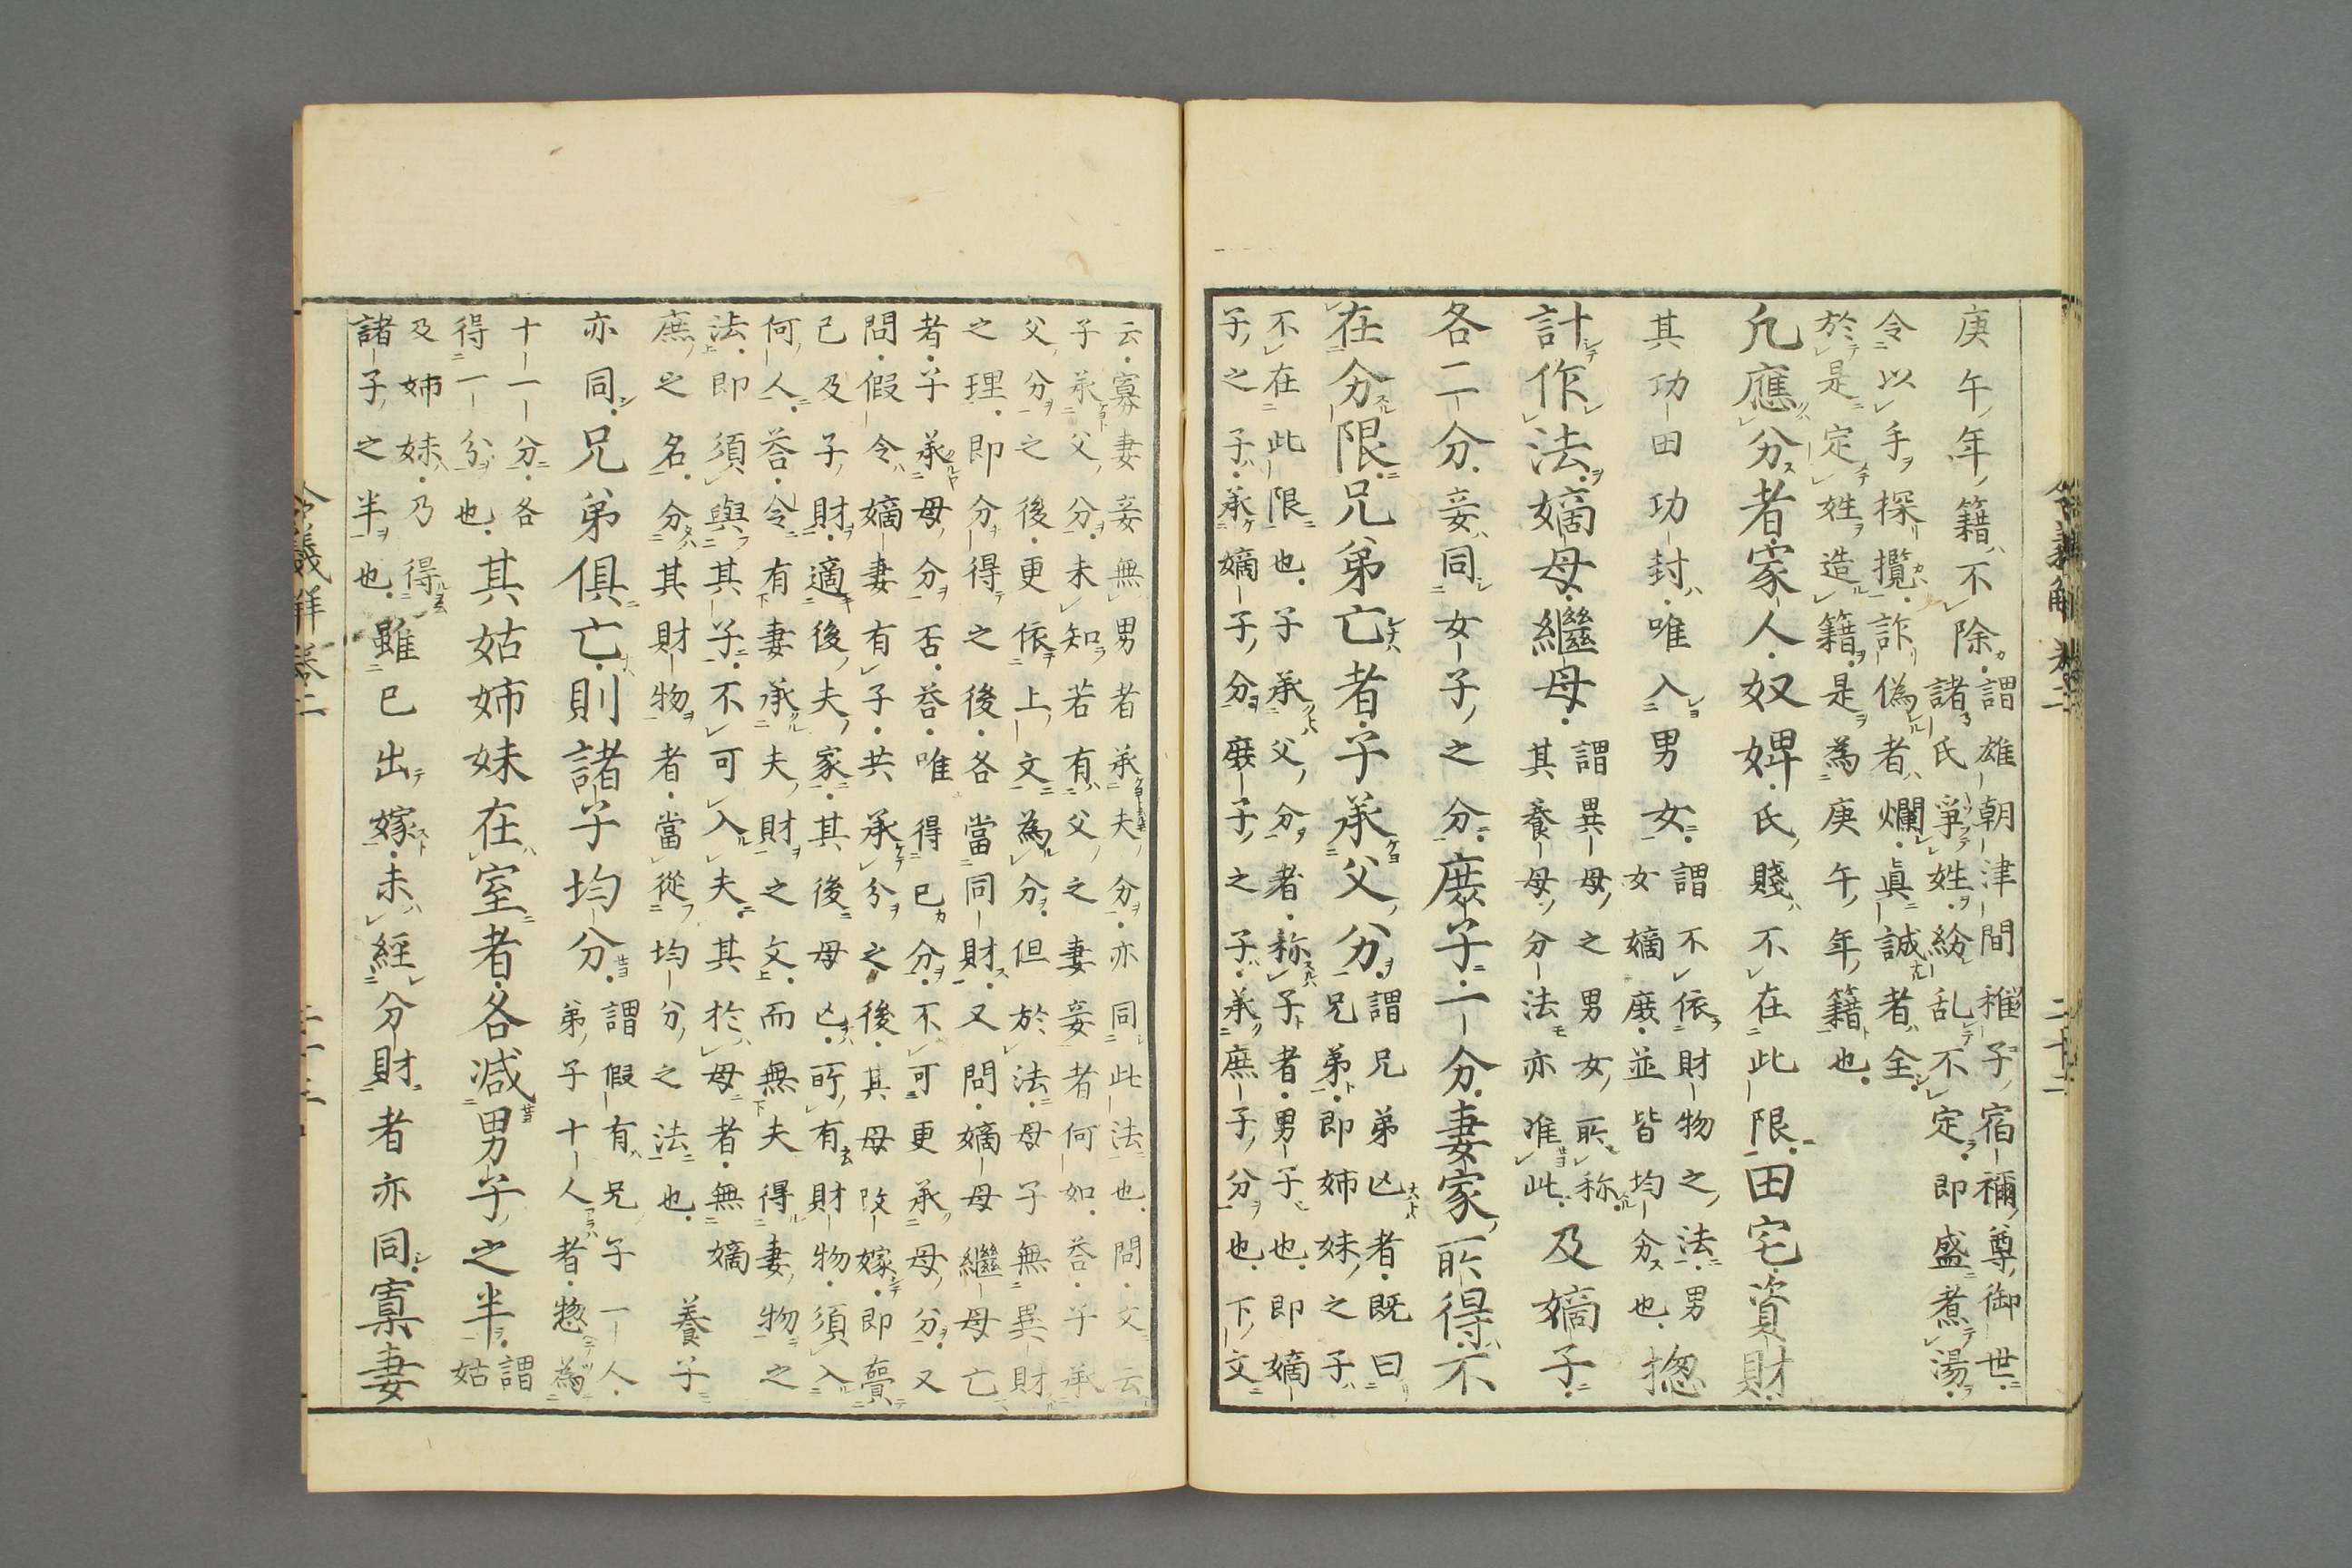 庚午年籍不除謂雄朝津間稚子宿禰尊御世
諸氏爭姓紛乱不定即盛煮湯
令以手探攬詐偽者爛眞誠者全
於是定姓造籍是為庚午年籍也
凡應分者家人奴婢氏賤不在此限田宅資財
其功田功封唯入男女謂不依財物之法男
女嫡庶並皆均分也惣
計作法嫡母繼母謂異母之男女所称
其養母分法亦准此及嫡子
各二分妾同女子之分庶子一分妻家所得不
在分限兄弟亡者子承父分謂兄弟亡者既曰
兄弟即姉妹之子
不在此限也子承父分者称子者男子也即嫡
子之子承嫡子分庶子之子承庶子分也下文
云寡妻妾無男者承夫分亦同此法也問文云
子承父分未知若有父之妻妾者何如荅子承
父分之後更依上文為分但於法母子無異財
之理即分得之後各當同財又問嫡母繼母亡
者子承母分否荅唯得已分不可更承母分又
問假令嫡妻有子共承分之後其母改嫁即賷
己及子財適後夫家其後母亡所有財物須入
何人荅令有妻承夫財之文而無夫得妻物之
法即須與其子不可入夫其於母者無嫡
庶之名分其財物者當從均分之法也養子
亦同兄弟俱亡則諸子均分謂假有兄子一人
弟子十人者惣為
十一分各
得一分也其姑姉妹在室者各減男子之半謂
姑
及姉妹乃得
諸子之半也雖已出嫁未經分財者亦同寡妻
令義解 卷二 二十二